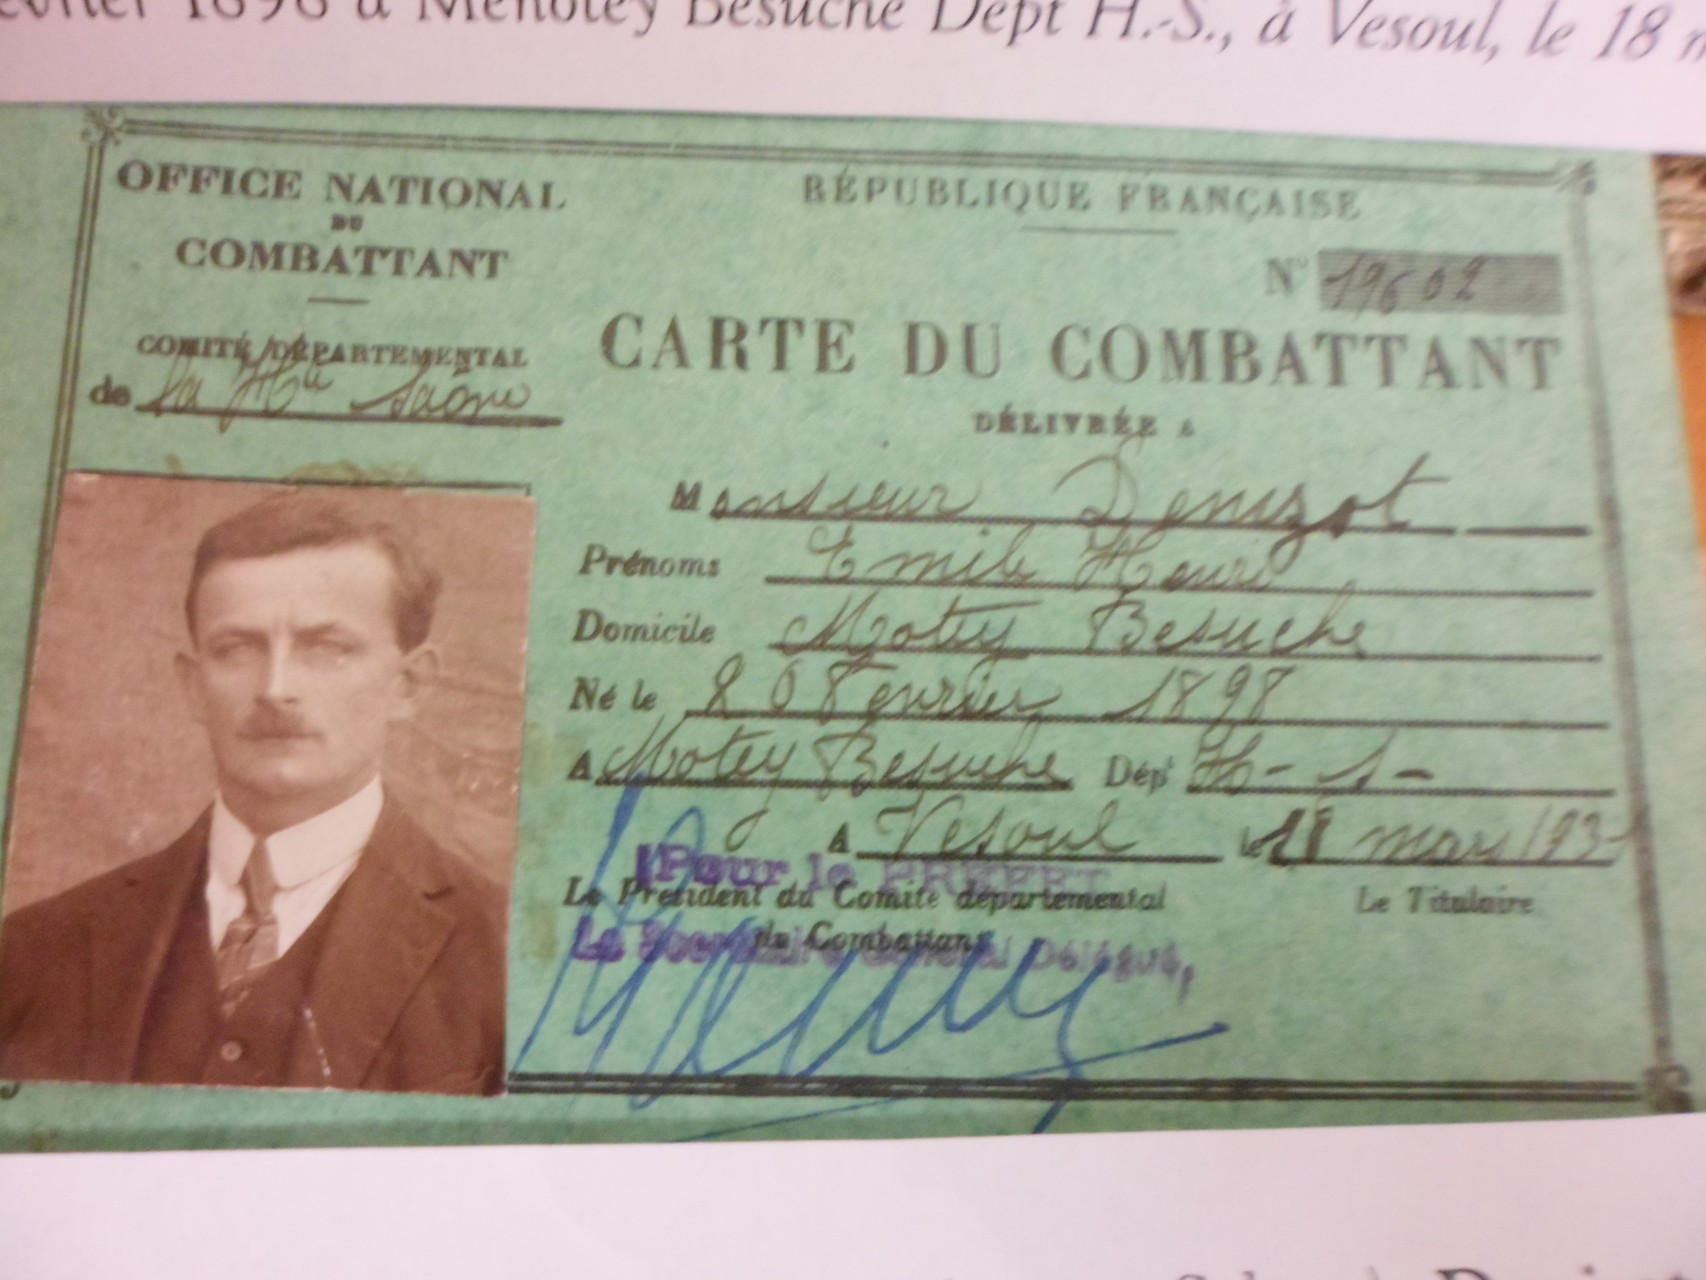 à Menotey Besuche Dept H.-S., à Vesoul, le 18
OFFICE NATIONAL
DU
COMBATTANT
COMITÉ DÉPARTEMENTAL
de la Hte Saône
RÉPUBLIQUE FRANÇAISE
N° 19602
CARTE DU COMBATTANT
DÉLIVRÉE A
Monsieur Denizot
Prénoms Emile Henri
Domicile Motey Besuche
Né le 20 Fevrier 1898
A Motey Besuche Dépt H-S-
A Vesoul le 18 mars 193
Pour le PREFET
Le Président du Comité départemental Le Titulaire
du Combattant
Le Secrétaire Général Délégué,